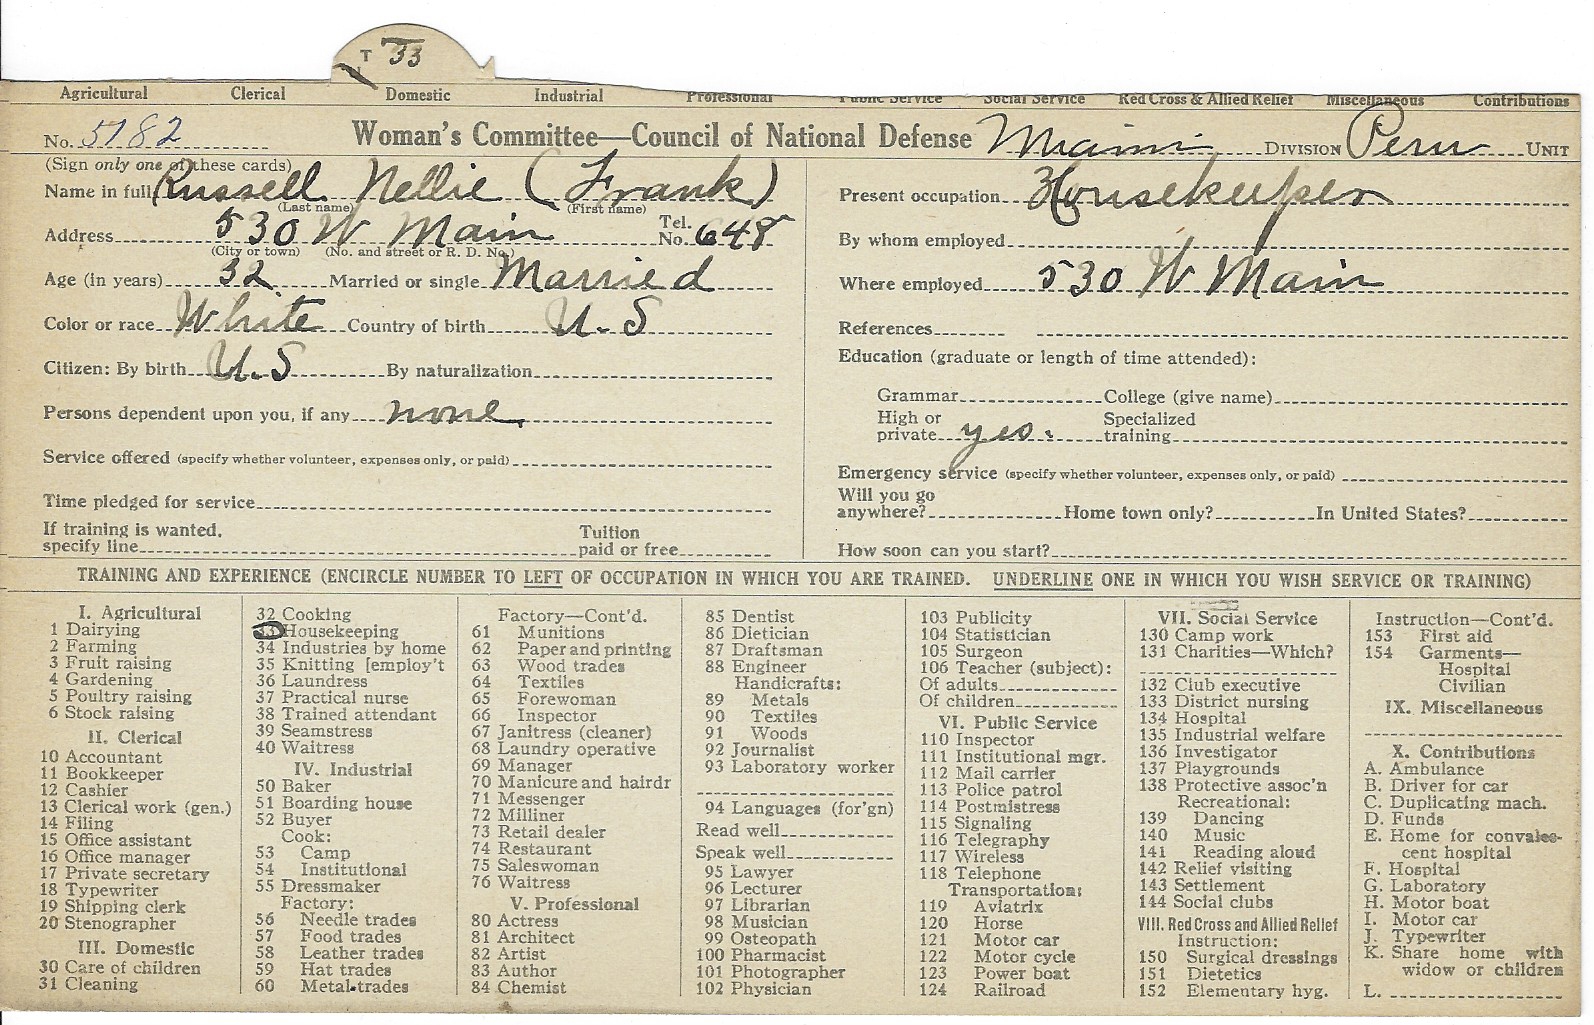 T 33
Agricultural Clerical Domestic Industrial Professional Public Service Social Service Red Cross & Allied Relief Miscellaneous Contributions
No. 5782 Woman's Committee—Council of National Defense Miami DIVISION Peru UNIT
(Sign only one of these cards)
Name in full Russell Nellie (Frank)
(Last name) (First name)
Address 530 W Main Tel. No. 648
(City or town) (No. and street or R. D. No.)
Age (in years) 32 Married or single Married
Color or race White Country of birth U.S
Citizen: By birth U.S By naturalization
Persons dependent upon you, if any none
Service offered (specify whether volunteer, expenses only, or paid)
Time pledged for service
If training is wanted, specify line Tuition paid or free
Present occupation Housekeeper
By whom employed
Where employed 530 W Main
References
Education (graduate or length of time attended):
Grammar College (give name)
High or private yes. Specialized training
Emergency service (specify whether volunteer, expenses only, or paid)
Will you go anywhere? Home town only? In United States?
How soon can you start?
TRAINING AND EXPERIENCE (ENCIRCLE NUMBER TO LEFT OF OCCUPATION IN WHICH YOU ARE TRAINED. UNDERLINE ONE IN WHICH YOU WISH SERVICE OR TRAINING)
I. Agricultural
1 Dairying
2 Farming
3 Fruit raising
4 Gardening
5 Poultry raising
6 Stock raising
II. Clerical
10 Accountant
11 Bookkeeper
12 Cashier
13 Clerical work (gen.)
14 Filing
15 Office assistant
16 Office manager
17 Private secretary
18 Typewriter
19 Shipping clerk
20 Stenographer
III. Domestic
30 Care of children
31 Cleaning
32 Cooking
33 Housekeeping
34 Industries by home
35 Knitting [employ't
36 Laundress
37 Practical nurse
38 Trained attendant
39 Seamstress
40 Waitress
IV. Industrial
50 Baker
51 Boarding house
52 Buyer
Cook:
53 Camp
54 Institutional
55 Dressmaker
Factory:
56 Needle trades
57 Food trades
58 Leather trades
59 Hat trades
60 Metal trades
Factory—Cont'd.
61 Munitions
62 Paper and printing
63 Wood trades
64 Textiles
65 Forewoman
66 Inspector
67 Janitress (cleaner)
68 Laundry operative
69 Manager
70 Manicure and hairdr
71 Messenger
72 Milliner
73 Retail dealer
74 Restaurant
75 Saleswoman
76 Waitress
V. Professional
80 Actress
81 Architect
82 Artist
83 Author
84 Chemist
85 Dentist
86 Dietician
87 Draftsman
88 Engineer
Handicrafts:
89 Metals
90 Textiles
91 Woods
92 Journalist
93 Laboratory worker
94 Languages (for'gn)
Read well
Speak well
95 Lawyer
96 Lecturer
97 Librarian
98 Musician
99 Osteopath
100 Pharmacist
101 Photographer
102 Physician
103 Publicity
104 Statistician
105 Surgeon
106 Teacher (subject):
Of adults
Of children
VI. Public Service
110 Inspector
111 Institutional mgr.
112 Mail carrier
113 Police patrol
114 Postmistress
115 Signaling
116 Telegraphy
117 Wireless
118 Telephone
Transportation:
119 Aviatrix
120 Horse
121 Motor car
122 Motor cycle
123 Power boat
124 Railroad
VII. Social Service
130 Camp work
131 Charities—Which?
132 Club executive
133 District nursing
134 Hospital
135 Industrial welfare
136 Investigator
137 Playgrounds
138 Protective assoc'n
Recreational:
139 Dancing
140 Music
141 Reading aloud
142 Relief visiting
143 Settlement
144 Social clubs
VIII. Red Cross and Allied Relief
Instruction:
150 Surgical dressings
151 Dietetics
152 Elementary hyg.
Instruction—Cont'd.
153 First aid
154 Garments—
Hospital
Civilian
IX. Miscellaneous
X. Contributions
A. Ambulance
B. Driver for car
C. Duplicating mach.
D. Funds
E. Home for convales-
cent hospital
F. Hospital
G. Laboratory
H. Motor boat
I. Motor car
J. Typewriter
K. Share home with
widow or children
L.